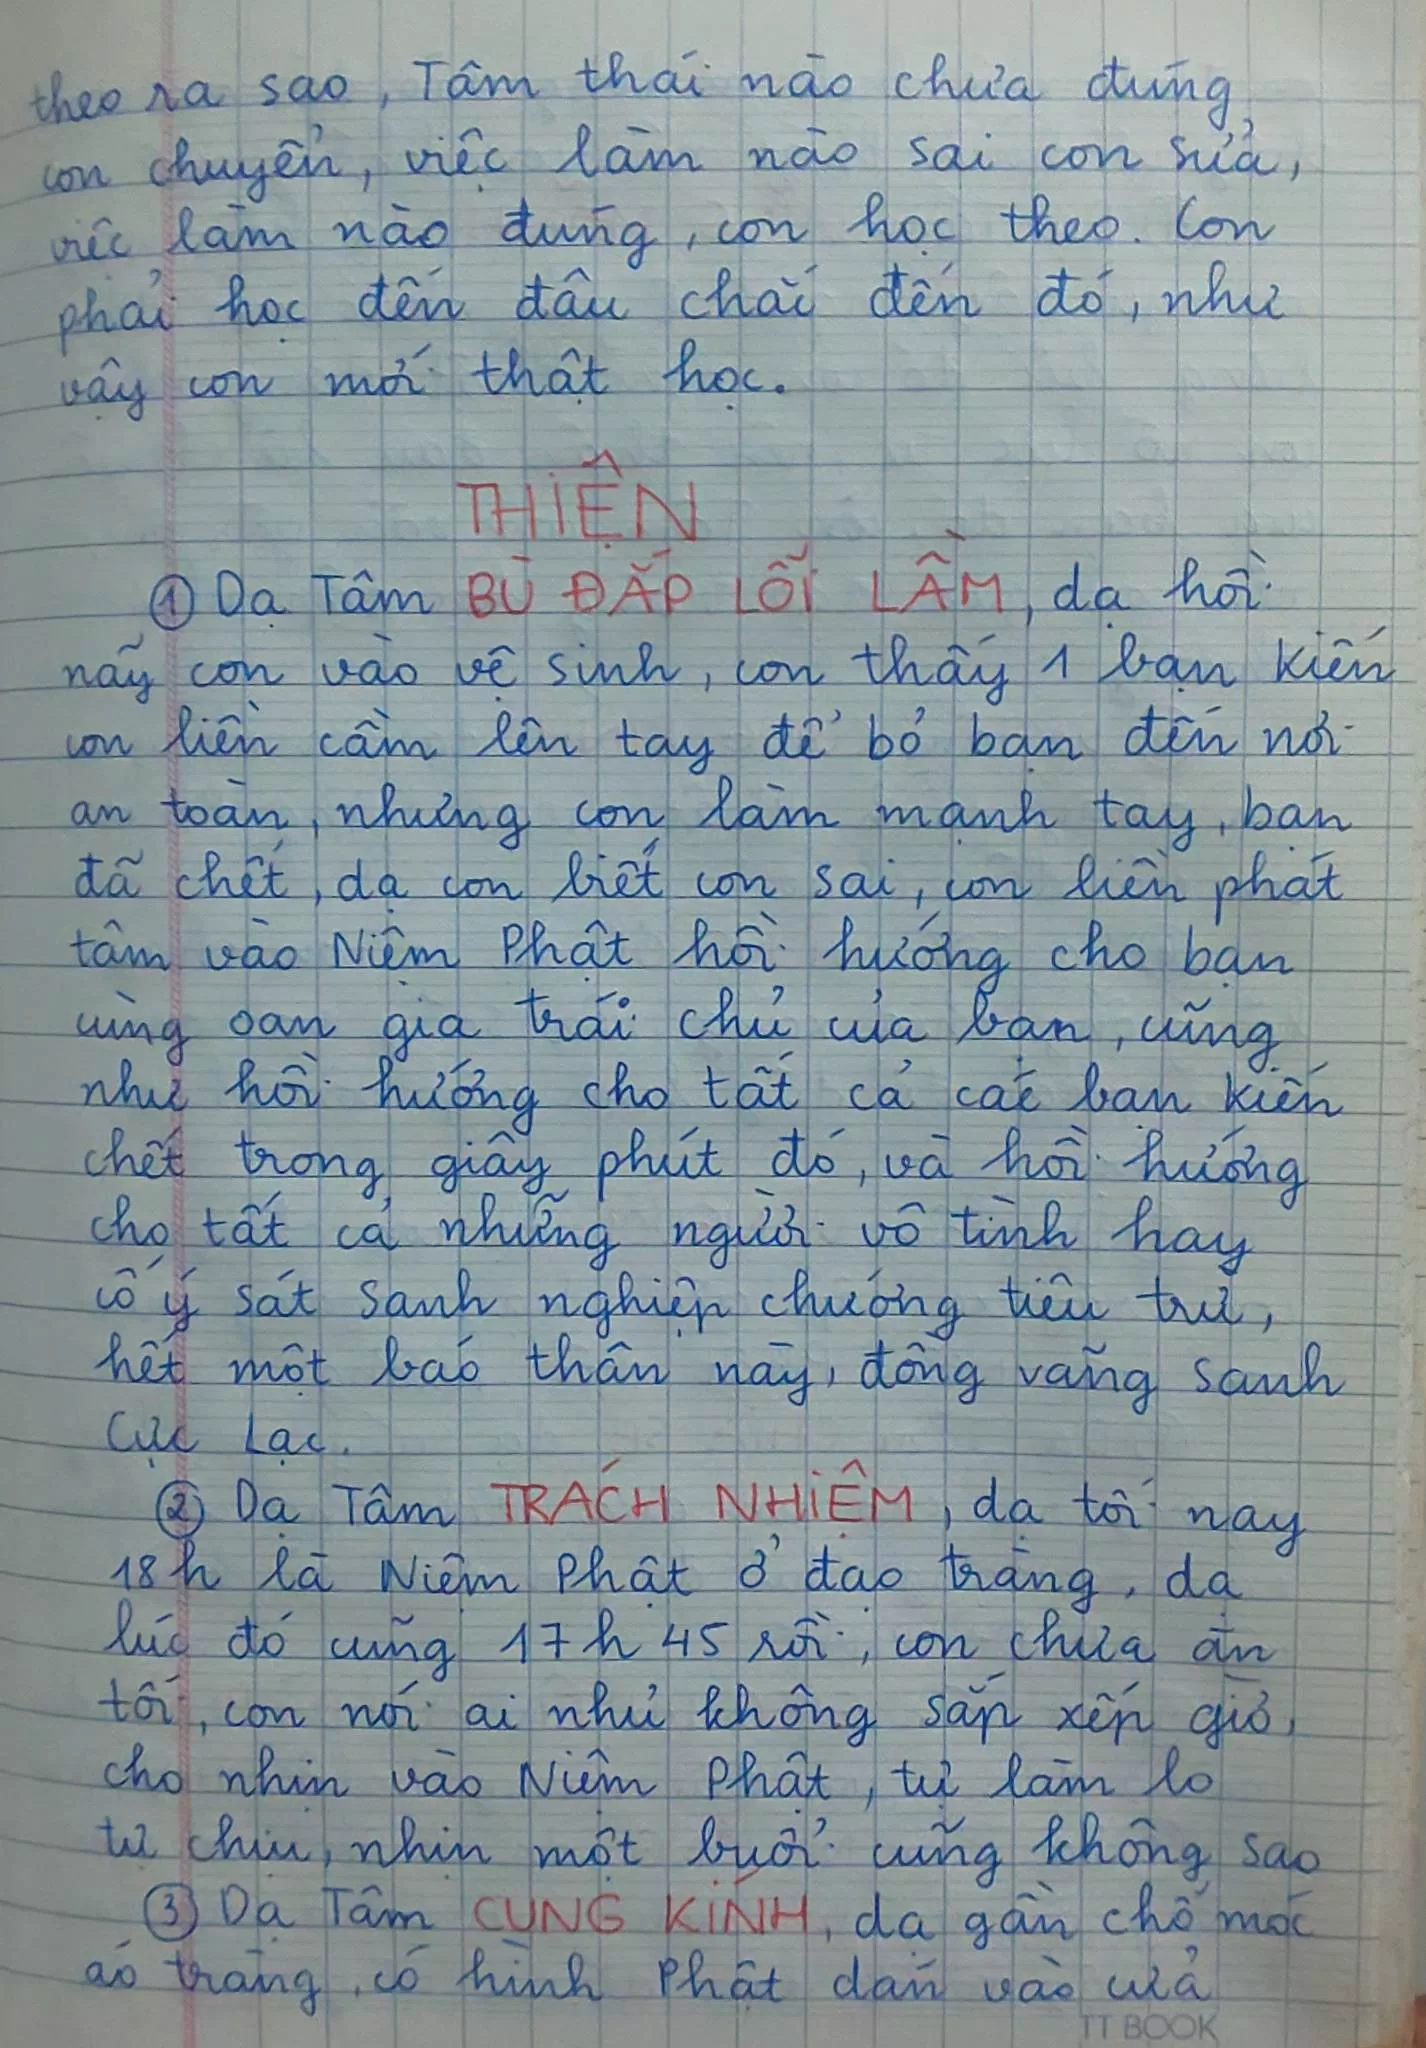 theo ra sao, Tâm thái nào chưa đúng
con chuyển, việc làm nào sai con sửa,
việc làm nào đúng, con học theo. Con
phải học đến đâu chắc đến đó, như
vậy con mới thật học.
THIỆN
① Dạ Tâm BÙ ĐẮP LỖI LẦM, dạ hồi
nãy con vào vệ sinh, con thấy 1 bạn kiến
con liền cầm lên tay để bỏ bạn đến nơi
an toàn, nhưng con làm mạnh tay, bạn
đã chết, dạ con biết con sai, con liền phát
tâm vào Niệm Phật hồi hướng cho bạn
cùng oan gia trái chủ của bạn, cũng
như hồi hướng cho tất cả các bạn kiến
chết trong giây phút đó, và hồi hướng
cho tất cả những người vô tình hay
cố ý sát sanh nghiệp chướng tiêu trừ,
hết một báo thân này, đồng vãng sanh
Cực Lạc.
② Dạ Tâm TRÁCH NHIỆM, dạ tối nay
18h là Niệm Phật ở đạo tràng, dạ
lúc đó cũng 17h45 rồi, con chưa ăn
tối, con nói ai như không sắp xếp giờ,
cho nhịn vào Niệm Phật, tự làm lo
tự chịu, nhịn một buổi cũng không sao
③ Dạ Tâm CUNG KÍNH, dạ gần chỗ móc
áo tràng, có hình Phật dán vào cửa
TT BOOK